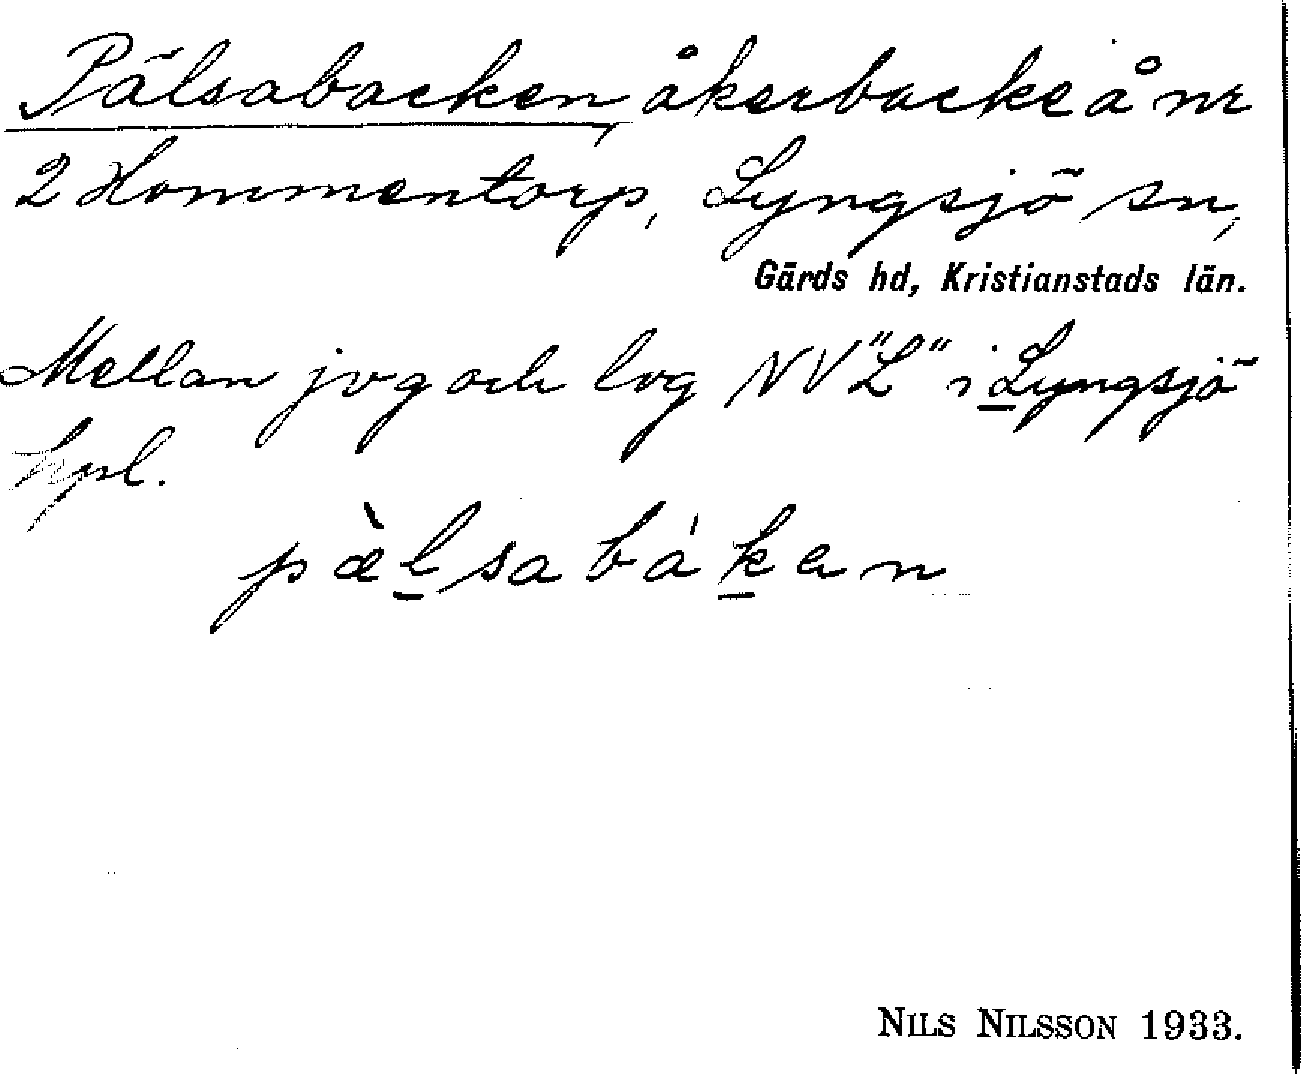 Pälsabacken, åkerbacke å nr
2 Hommentorp, Lyngsjö sn,
Gärds hd, Kristianstads län.
Mellan jvg och lvg NV "L" i Lyngsjö
hpl.
pæ̀l̲sabák̲en
NILS NILSSON 1933.